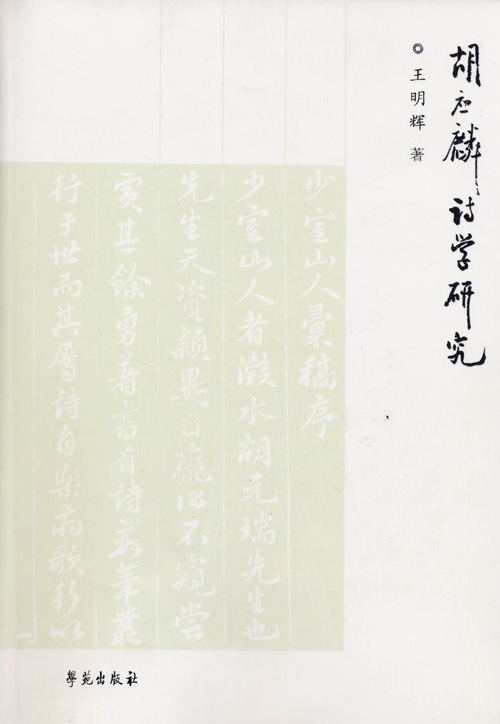 胡应麟诗学研究
◎王明辉 著
少室山人彙稿序
少室山人者瀫水胡元瑞先生也
先生天資穎異自龐公不窺嘗
賈其餘勇著書有詩藪筆叢
行于世而其屬詩自樂府歌行以
學苑出版社